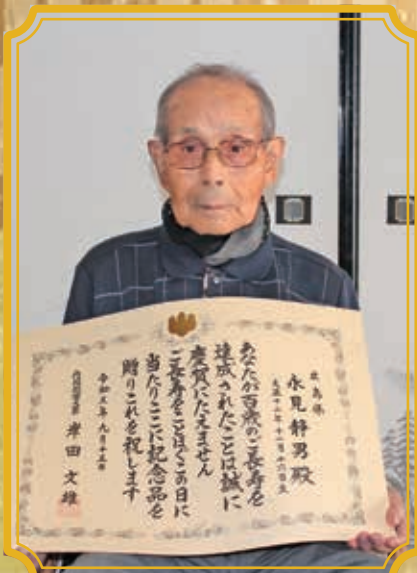 永見静男殿
あなたが百歳のご長寿を
達成されたことは誠に
慶賀にたえません
ご長寿をことほぐこの日に
当たりここに記念品を
贈りこれを祝します
令和五年九月十五日
内閣総理大臣 岸田文雄